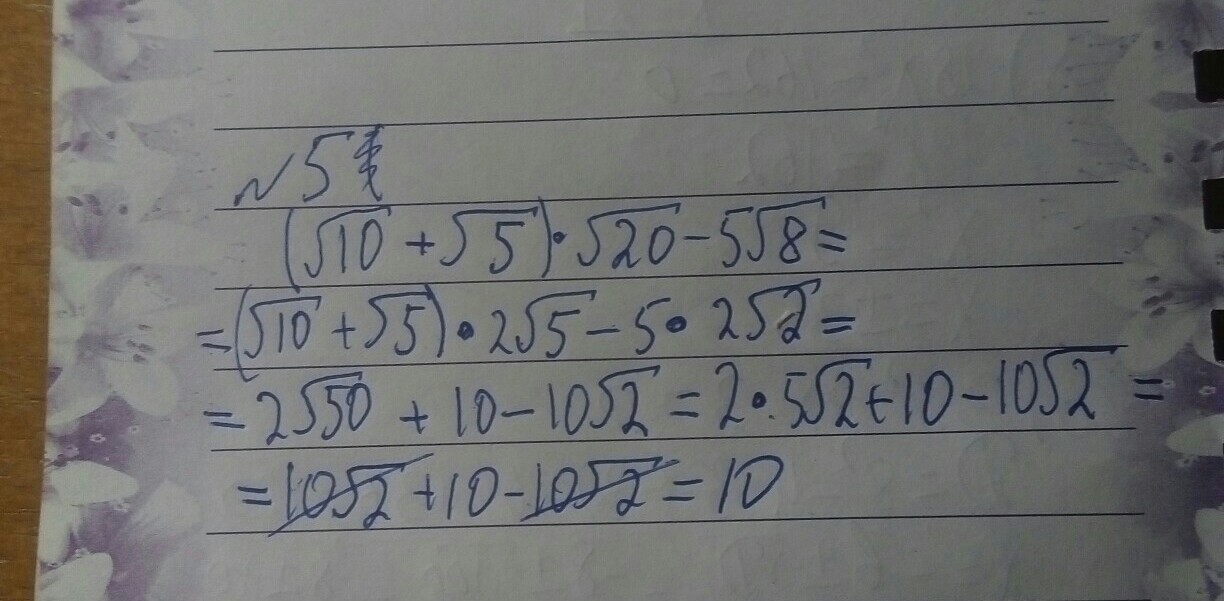 №5
(√10 + √5)·√20 - 5√8 =
= (√10 + √5)·2√5 - 5·2√2 =
= 2√50 + 10 - 10√2 = 2·5√2 + 10 - 10√2 =
= 10√2 + 10 - 10√2 = 10